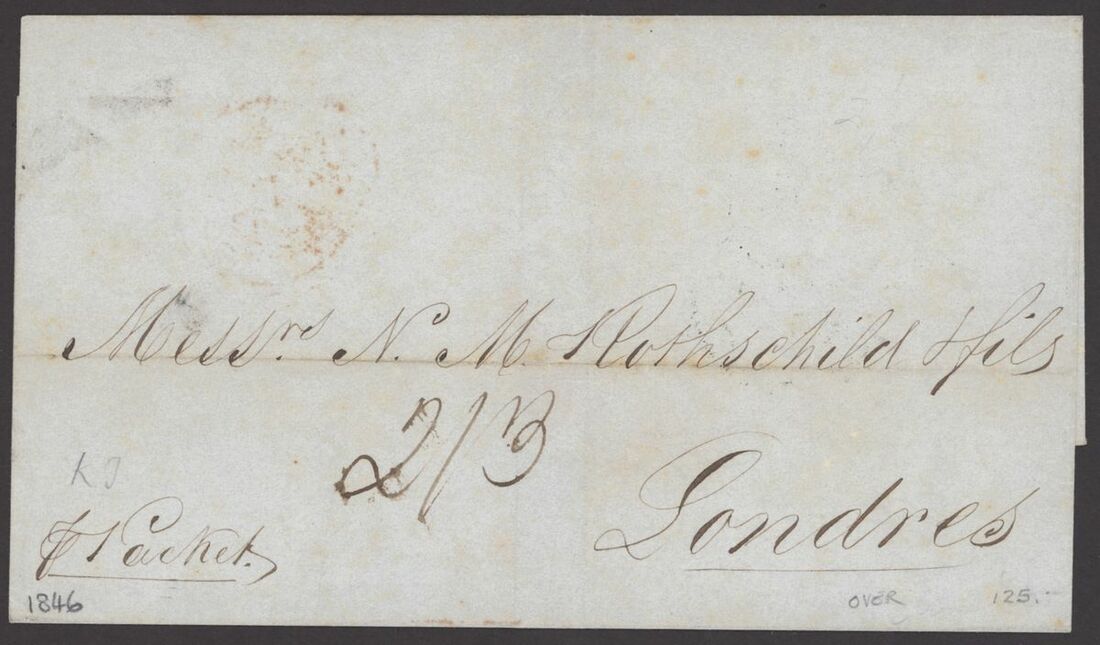 Messrs N. M. Rothschild & fils
2/3
Londres
KJ
p Packet.
1846
OVER
125.-